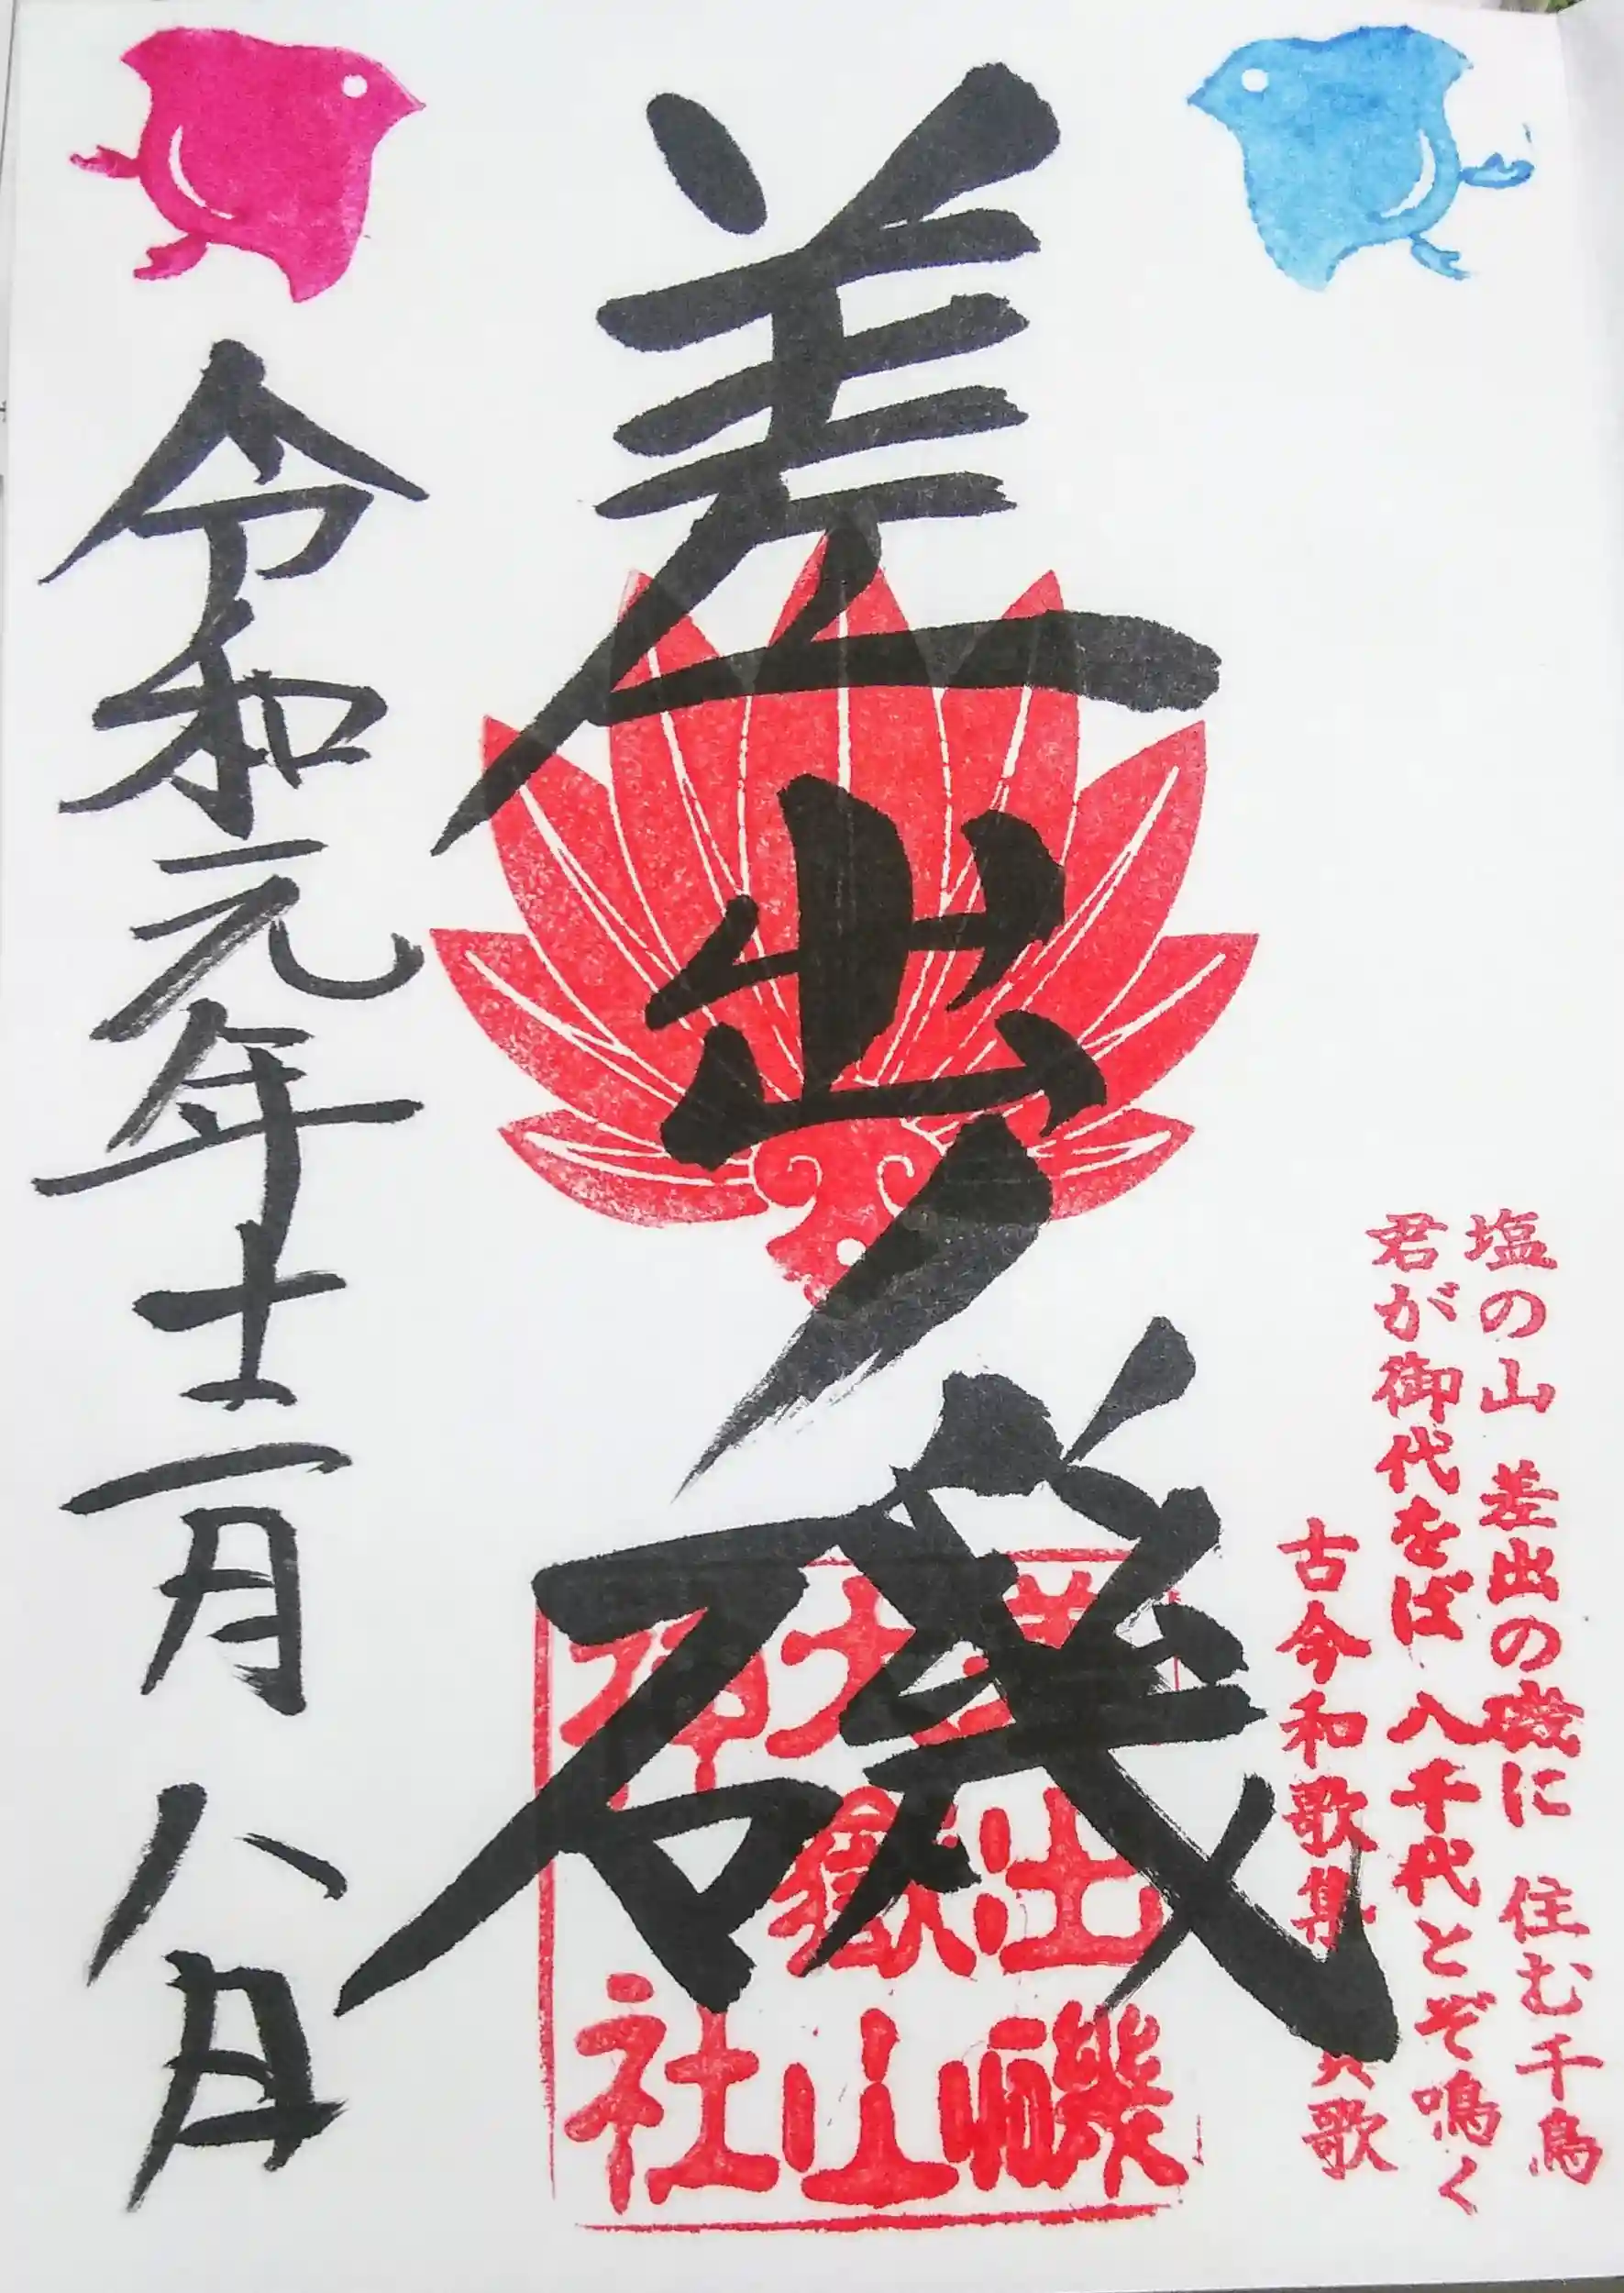 塩の山 差出の磯に 住む千鳥
君が御代をば 八千代とぞ鳴く
古今和歌集 歌
差出ノ磯
差出磯
大嶽山
神社
令和元年十二月 八日